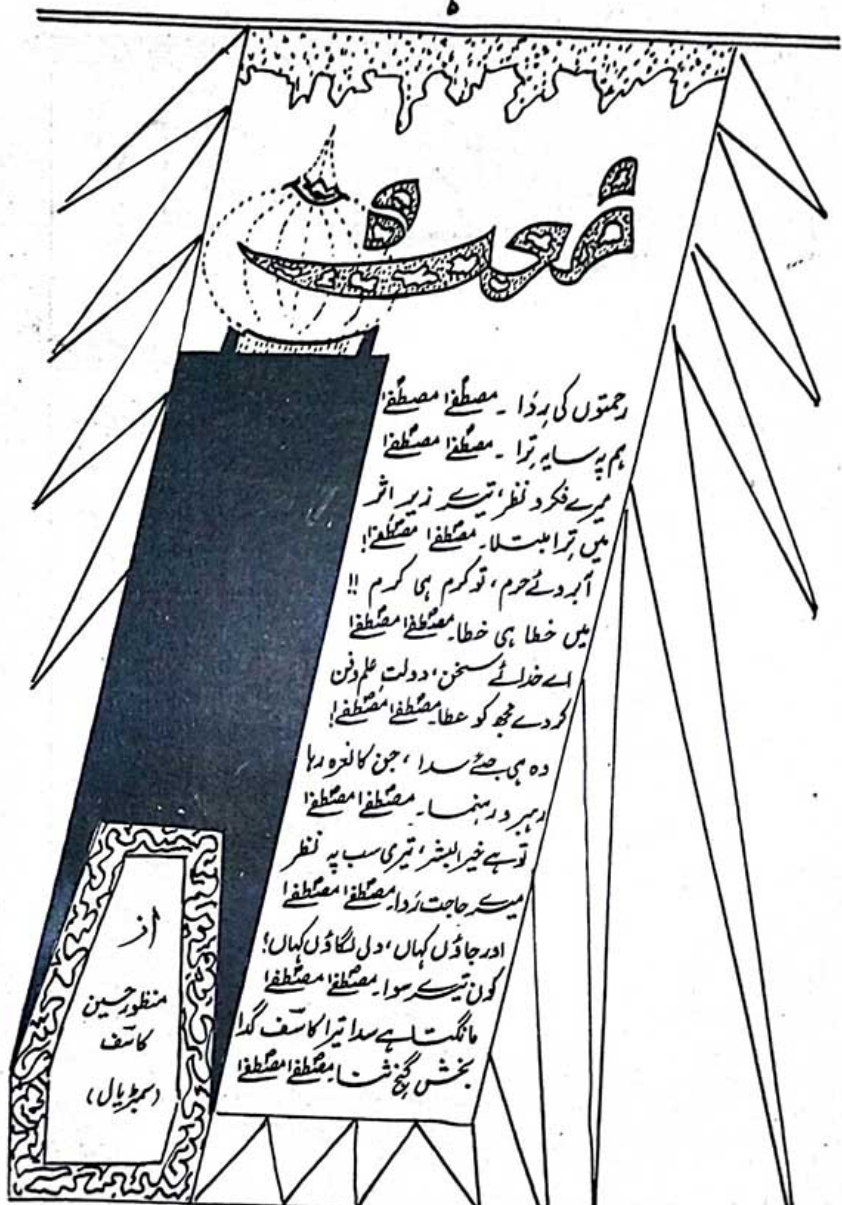 ۵
نعت
رحمتوں کی رِدا ۔ مصطفٰےؐ مصطفٰےؐ
ہم پہ سایہ تِرا ۔ مصطفٰےؐ مصطفٰےؐ
میرے فکر و نظر، تیرے زیرِ اثر
میں تِرا مبتلا۔ مصطفٰےؐ مصطفٰےؐ!!
آبروئے حرم، تو کرم ہی کرم !!
میں خطا ہی خطا۔ مصطفٰےؐ مصطفٰےؐ
اے خدائے سخن، دولتِ علم و فن
کر دے مجھ کو عطا۔ مصطفٰےؐ مصطفٰےؐ!
وہ ہی جئے سدا ، جن کا نعرہ رہا
رہبر و رہنما۔ مصطفٰےؐ مصطفٰےؐ
تو ہے خیر البشر، تیری سب پہ نظر
میرے حاجت رَوا۔ مصطفٰےؐ مصطفٰےؐ
اور جاؤں کہاں، دل لگاؤں کہاں!
کون تیرے سوا۔ مصطفٰےؐ مصطفٰےؐ
مانگتا ہے سدا تیرا کاسفؔ گدا
بخش گنجِ ثنا۔ مصطفٰےؐ مصطفٰےؐ
از
منظور حسین
کاسفؔ
(سمبڑیال)